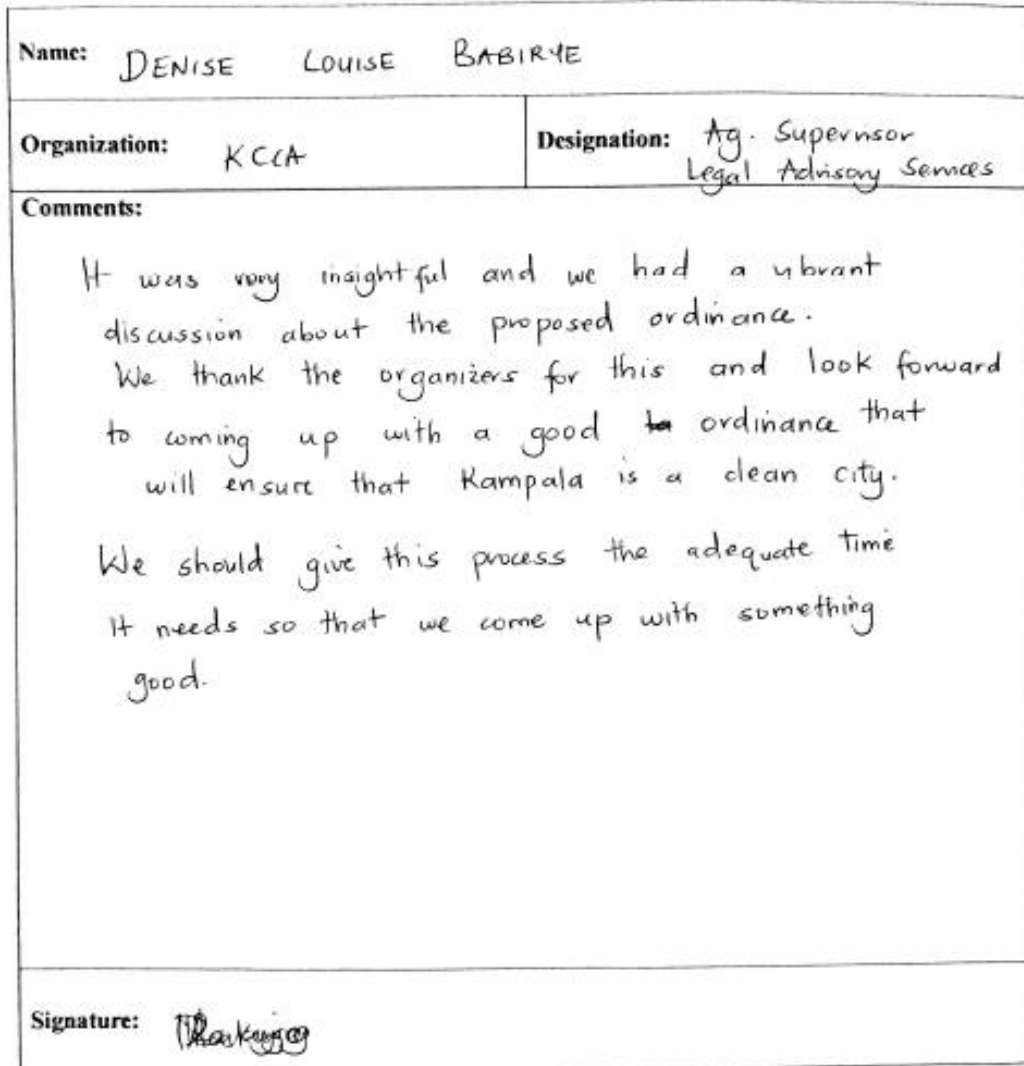 Name: DENISE LOUISE BABIRYE
Organization: KCCA
Designation: Ag. Supervisor
Legal Advisory Services
Comments:
It was very insightful and we had a vibrant
discussion about the proposed ordinance.
We thank the organizers for this and look forward
to coming up with a good ordinance that
will ensure that Kampala is a clean city.
We should give this process the adequate time
it needs so that we come up with something
good.
Signature: